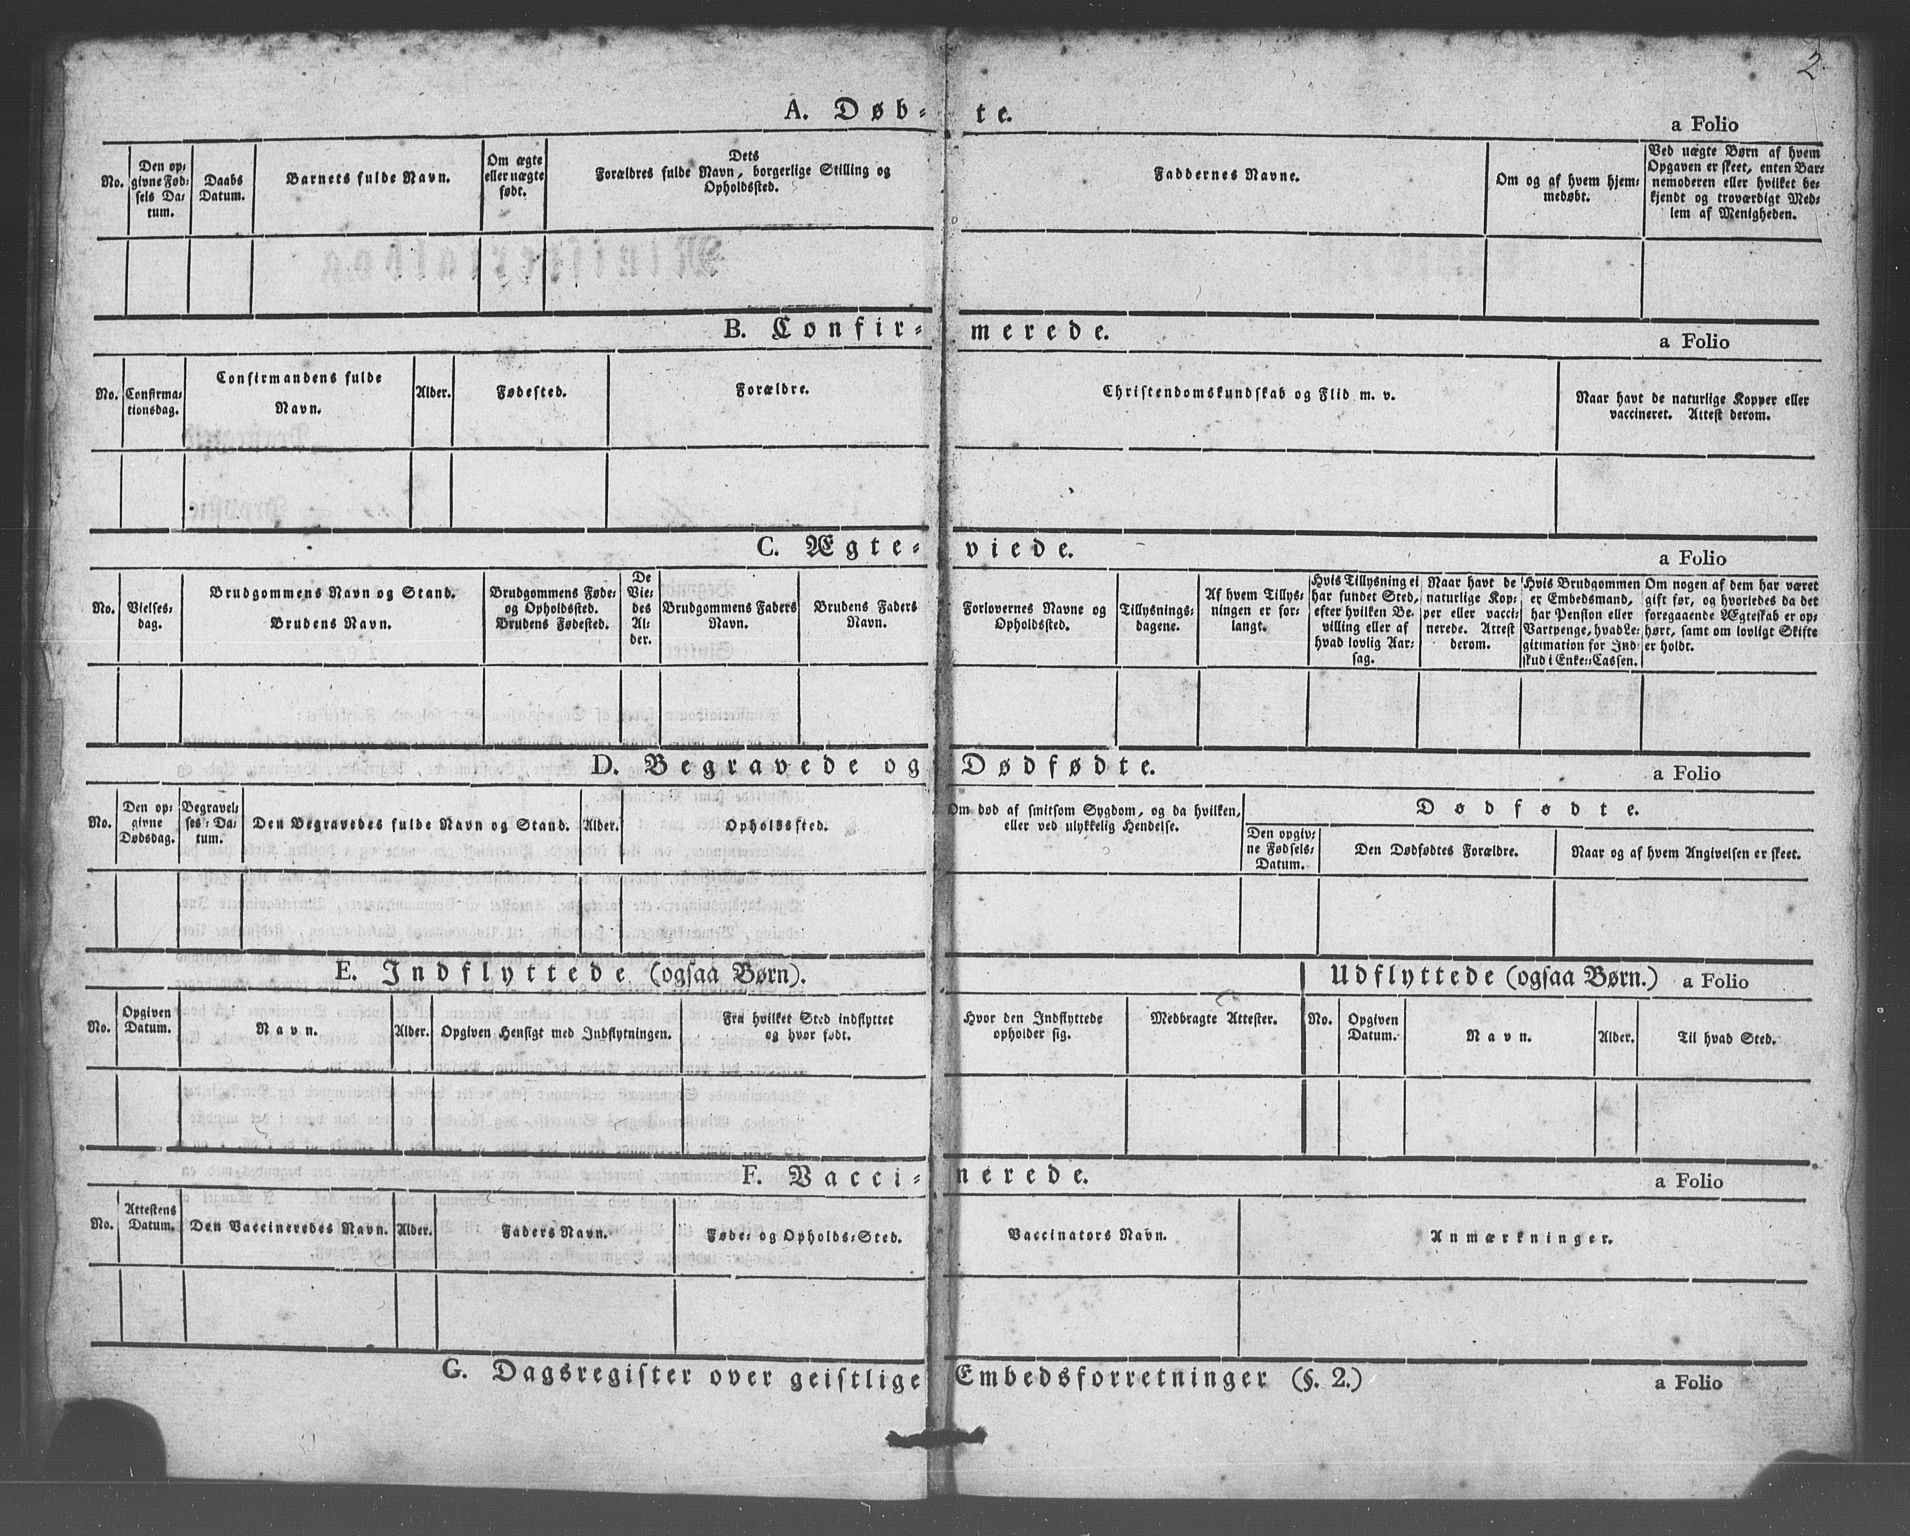 2
A. Døb-te.
a Folio
No.
Den op-
givne Fød-
sels Da-
tum.
Daabs
Datum.
Barnets fulde Navn.
Om ægte
eller uægte
født.
Dets
Forældres fulde Navn, borgerlige Stilling og
Opholdsted.
Faddernes Navne.
Om og af hvem hjem-
medøbt.
Ved uægte Børn af hvem
Opgaven er skeet, enten Bar-
nemoderen eller hvilket be-
kjendt og troværdigt Med-
lem af Menigheden.
B. Confir-merede.
a Folio
No.
Confirma-
tionsdag.
Confirmandens fulde
Navn.
Alder.
Fødested.
Forældre.
Christendomskundskab og Flid m. v.
Naar havt de naturlige Kopper eller
vaccineret. Attest derom.
C. Ægte-viede.
a Folio
No.
Vielses-
dag.
Brudgommens Navn og Stand.
Brudens Navn.
Brudgommens Føde-
og Opholdsted.
Brudens Fødested.
De
Vie-
des
Al-
der.
Brudgommens Faders
Navn.
Brudens Faders
Navn.
Forlovernes Navne og
Opholdsted.
Tillysnings-
dagene.
Af hvem Tillys-
ningen er for-
langt.
Hvis Tillysning ei
har fundet Sted,
efter hvilken Be-
villing eller af
hvad lovlig Aar-
sag.
Naar havt de
naturlige Kop-
per eller vacci-
nerede. Attest
derom.
Hvis Brudgommen
er Embedsmand,
har Pension eller
Vartpenge, hvad Le-
gitimation for Ind-
skud i Enke-Cassen.
Om nogen af dem har været
gift før, og hvorledes da det
foregaaende Ægteskab er op-
hørt, samt om lovligt Skifte
er holdt.
D. Begravede og Dødfødte.
a Folio
No.
Den op-
givne
Dødsdag.
Begravel-
ses-Da-
tum.
Den Begravedes fulde Navn og Stand.
Alder.
Opholdssted.
Om død af smitsom Sygdom, og da hvilken,
eller ved ulykkelig Hendelse.
Dødfødte.
Den opgiv-
ne Fødsels-
Datum.
Den Dødfødtes Forældre.
Naar og af hvem Angivelsen er skeet.
E. Indflyttede (ogsaa Børn).
Udflyttede (ogsaa Børn.)
a Folio
No.
Opgiven
Datum.
Navn.
Alder.
Opgiven Hensigt med Indflytningen.
Fra hvilket Sted indflyttet
og hvor født.
Hvor den Indflyttede
opholder sig.
Medbragte Attester.
No.
Opgiven
Datum.
Navn.
Alder.
Til hvad Sted.
F. Vacci-nerede.
a Folio
No.
Attestens
Datum.
Den Vaccineredes Navn.
Alder.
Faders Navn.
Føde- og Opholds-Sted.
Vaccinators Navn.
Anmærkninger.
G. Dagsregister over geistlige Embedsforretninger (§. 2.)
a Folio